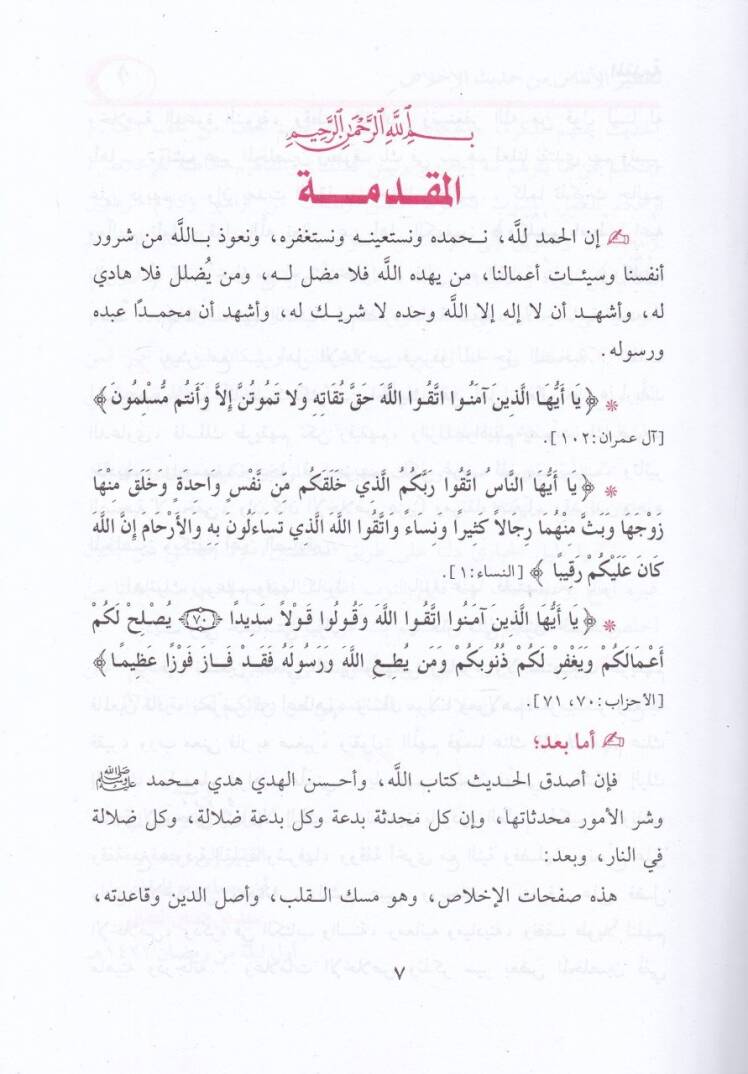 بسم الله الرحمن الرحيم
المقدمة
إن الحمد لله، نحمده ونستعينه ونستغفره، ونعوذ بالله من شرور
أنفسنا وسيئات أعمالنا، من يهده الله فلا مضل له، ومن يُضلل فلا هادي
له، وأشهد أن لا إله إلا الله وحده لا شريك له، وأشهد أن محمدًا عبده
ورسوله.
* ﴿يَا أَيُّهَا الَّذِينَ آمَنُوا اتَّقُوا اللَّهَ حَقَّ تُقَاتِهِ وَلَا تَمُوتُنَّ إِلَّا وَأَنتُم مُّسْلِمُونَ﴾
[آل عمران:١٠٢].
* ﴿يَا أَيُّهَا النَّاسُ اتَّقُوا رَبَّكُمُ الَّذِي خَلَقَكُم مِّن نَّفْسٍ وَاحِدَةٍ وَخَلَقَ مِنْهَا
زَوْجَهَا وَبَثَّ مِنْهُمَا رِجَالًا كَثِيرًا وَنِسَاءً وَاتَّقُوا اللَّهَ الَّذِي تَسَاءَلُونَ بِهِ وَالْأَرْحَامَ إِنَّ اللَّهَ
كَانَ عَلَيْكُمْ رَقِيبًا﴾ [النساء:١].
* ﴿يَا أَيُّهَا الَّذِينَ آمَنُوا اتَّقُوا اللَّهَ وَقُولُوا قَوْلًا سَدِيدًا ﴿٧٠﴾ يُصْلِحْ لَكُمْ
أَعْمَالَكُمْ وَيَغْفِرْ لَكُمْ ذُنُوبَكُمْ وَمَن يُطِعِ اللَّهَ وَرَسُولَهُ فَقَدْ فَازَ فَوْزًا عَظِيمًا﴾
[الأحزاب:٧٠، ٧١].
أما بعد؛
فإن أصدق الحديث كتاب الله، وأحسن الهدي هدي محمد ﷺ
وشر الأمور محدثاتها، وإن كل محدثة بدعة وكل بدعة ضلالة، وكل ضلالة
في النار، وبعد:
هذه صفحات الإخلاص، وهو مسك القلب، وأصل الدين وقاعدته،
٧